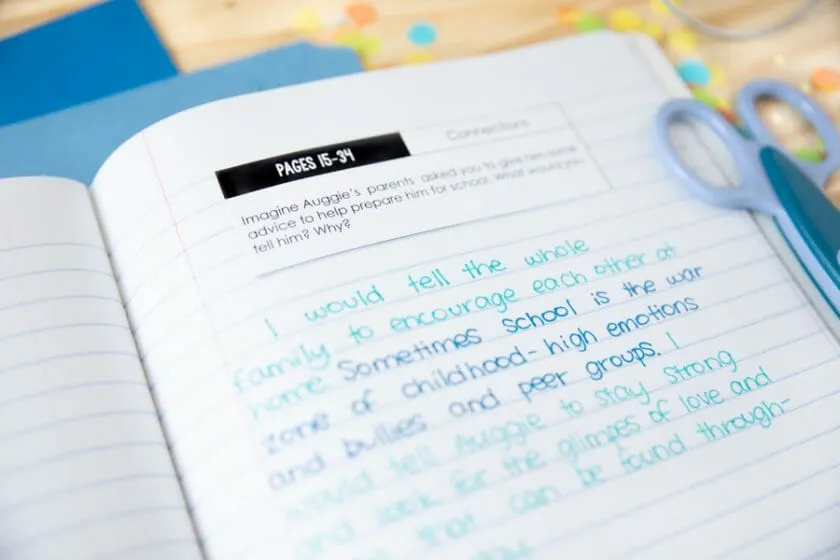 PAGES 15-34
Connections
Imagine Auggie's parents asked you to give him some
advice to help prepare him for school. What would you
tell him? Why?
I would tell the whole
family to encourage each other at
home. Sometimes school is the war
zone of childhood - high emotions
and bullies and peer groups. I
would tell Auggie to stay strong
and look for the glimpes of love and
that can be found through-